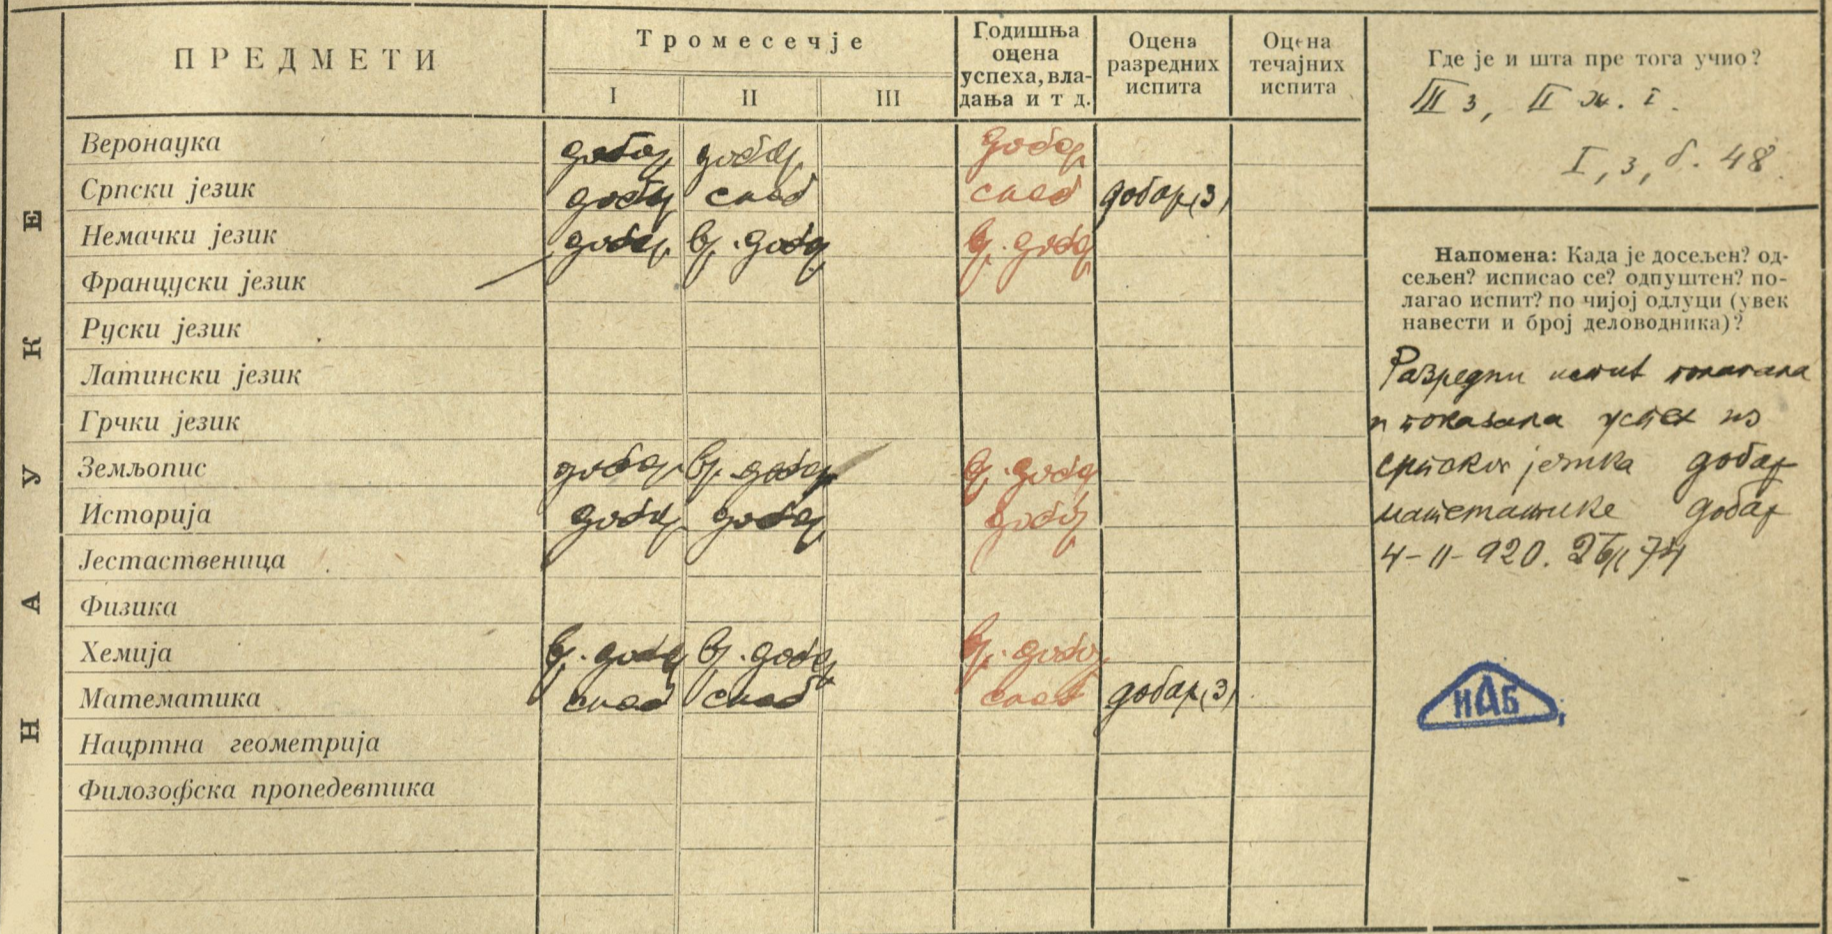 НАУКЕ
ПРЕДМЕТИ
Тромесечје
I II III
Годишња
оцена
успеха, вла-
дања и т д.
Оцена
разредних
испита
Оцена
течајних
испита
Где је и шта пре тога учио?
III з, II ж. I.
I, з, б. 48
Веронаука добар добар добар
Српски језик добар слаб слаб добар (3)
Немачки језик добар вр. добар вр. добар
Француски језик
Руски језик
Латински језик
Грчки језик
Земљопис добар вр. добар вр. добар
Историја добар добар добар
Јестаственица
Физика
Хемија вр. добар вр. добар вр. добар
Математика слаб слаб слаб добар (3)
Нацртна геометрија
Филозофска пропедевтика
Напомена: Када је досељен? од-
сељен? исписао се? одпуштен? по-
лагао испит? по чијој одлуци (увек
навести и број деловодника)?
Разредни испит полагала
и показала успех из
српског језика добар
математике добар
4-II-920.
НАБ